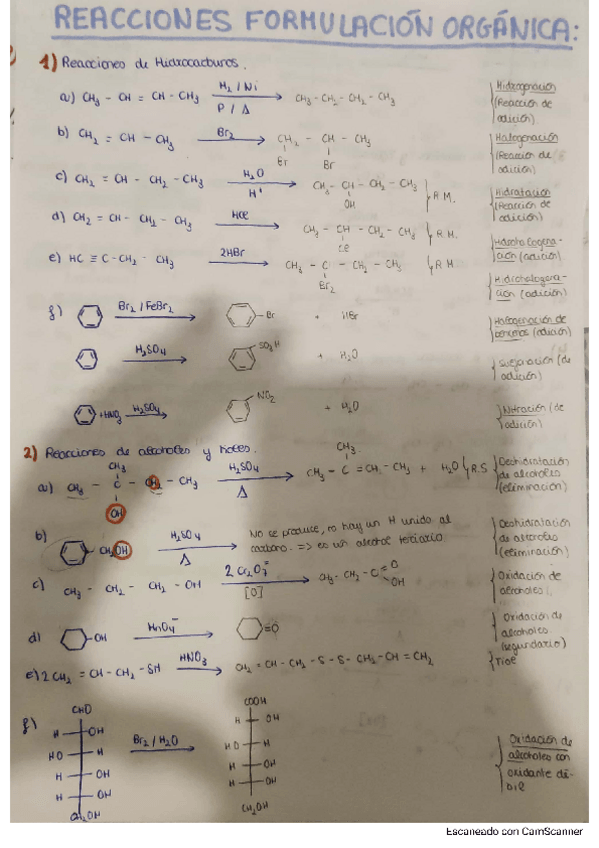 REACCIONES FORMULACIÓN ORGÁNICA:
1) Reacciones de Hidrocarburos.
a) CH₃ - CH = CH - CH₃ H₂ / Ni P / Δ → CH₃ - CH₂ - CH₂ - CH₃ Hidrogenación (Reacción de adición).
b) CH₂ = CH - CH₃ Br₂ → CH₂ - CH - CH₃ Br Br Halogenación (Reacción de adición)
c) CH₂ = CH - CH₂ - CH₃ H₂O H⁺ → CH₃ - CH - CH₂ - CH₃ OH R M. Hidratación (Reacción de adición)
d) CH₂ = CH - CH₂ - CH₃ HCl → CH₃ - CH - CH₂ - CH₃ Cl R M. Hidrohalogenación (adición)
e) HC ≡ C - CH₂ - CH₃ 2HBr → CH₃ - C - CH₂ - CH₃ Br₂ R M Hidrohalogenación (adición)
f) Br₂ / FeBr₂ → Br + HBr Halogenación de bencenos (adición)
H₂SO₄ → SO₃H + H₂O
+ HNO₃ H₂SO₄ → NO₂ + H₂O Nitración (de adición)
2) Reacciones de alcoholes y
a) CH₃ - C - CH₂ - CH₃ CH₃ OH H₂SO₄ Δ → CH₃ - C = CH - CH₃ CH₃ + H₂O R.S Deshidratación de alcoholes (eliminación)
b) CH₂OH H₂SO₄ Δ → No se produce, hay un H unido al carbono. => es un alcohol terciario Deshidratación de alcoholes (eliminación)
c) CH₃ - CH₂ - CH₂ - OH 2 Cr₂O₇⁼ [O] → CH₃ - CH₂ - C O OH Oxidación de alcoholes
d) OH MnO₄⁻ → = O Oxidación de alcoholes. (segundario)
e) 2 CH₂ = CH - CH₂ - SH HNO₃ → CH₂ = CH - CH₂ - S - S - CH₂ - CH = CH₂ Tiol
f) CHO H OH HO H H OH H OH CH₂OH Br₂ / H₂O → COOH H OH HO H H OH H OH CH₂OH Oxidación de alcoholes con oxidante débil
Escaneado con CamScanner